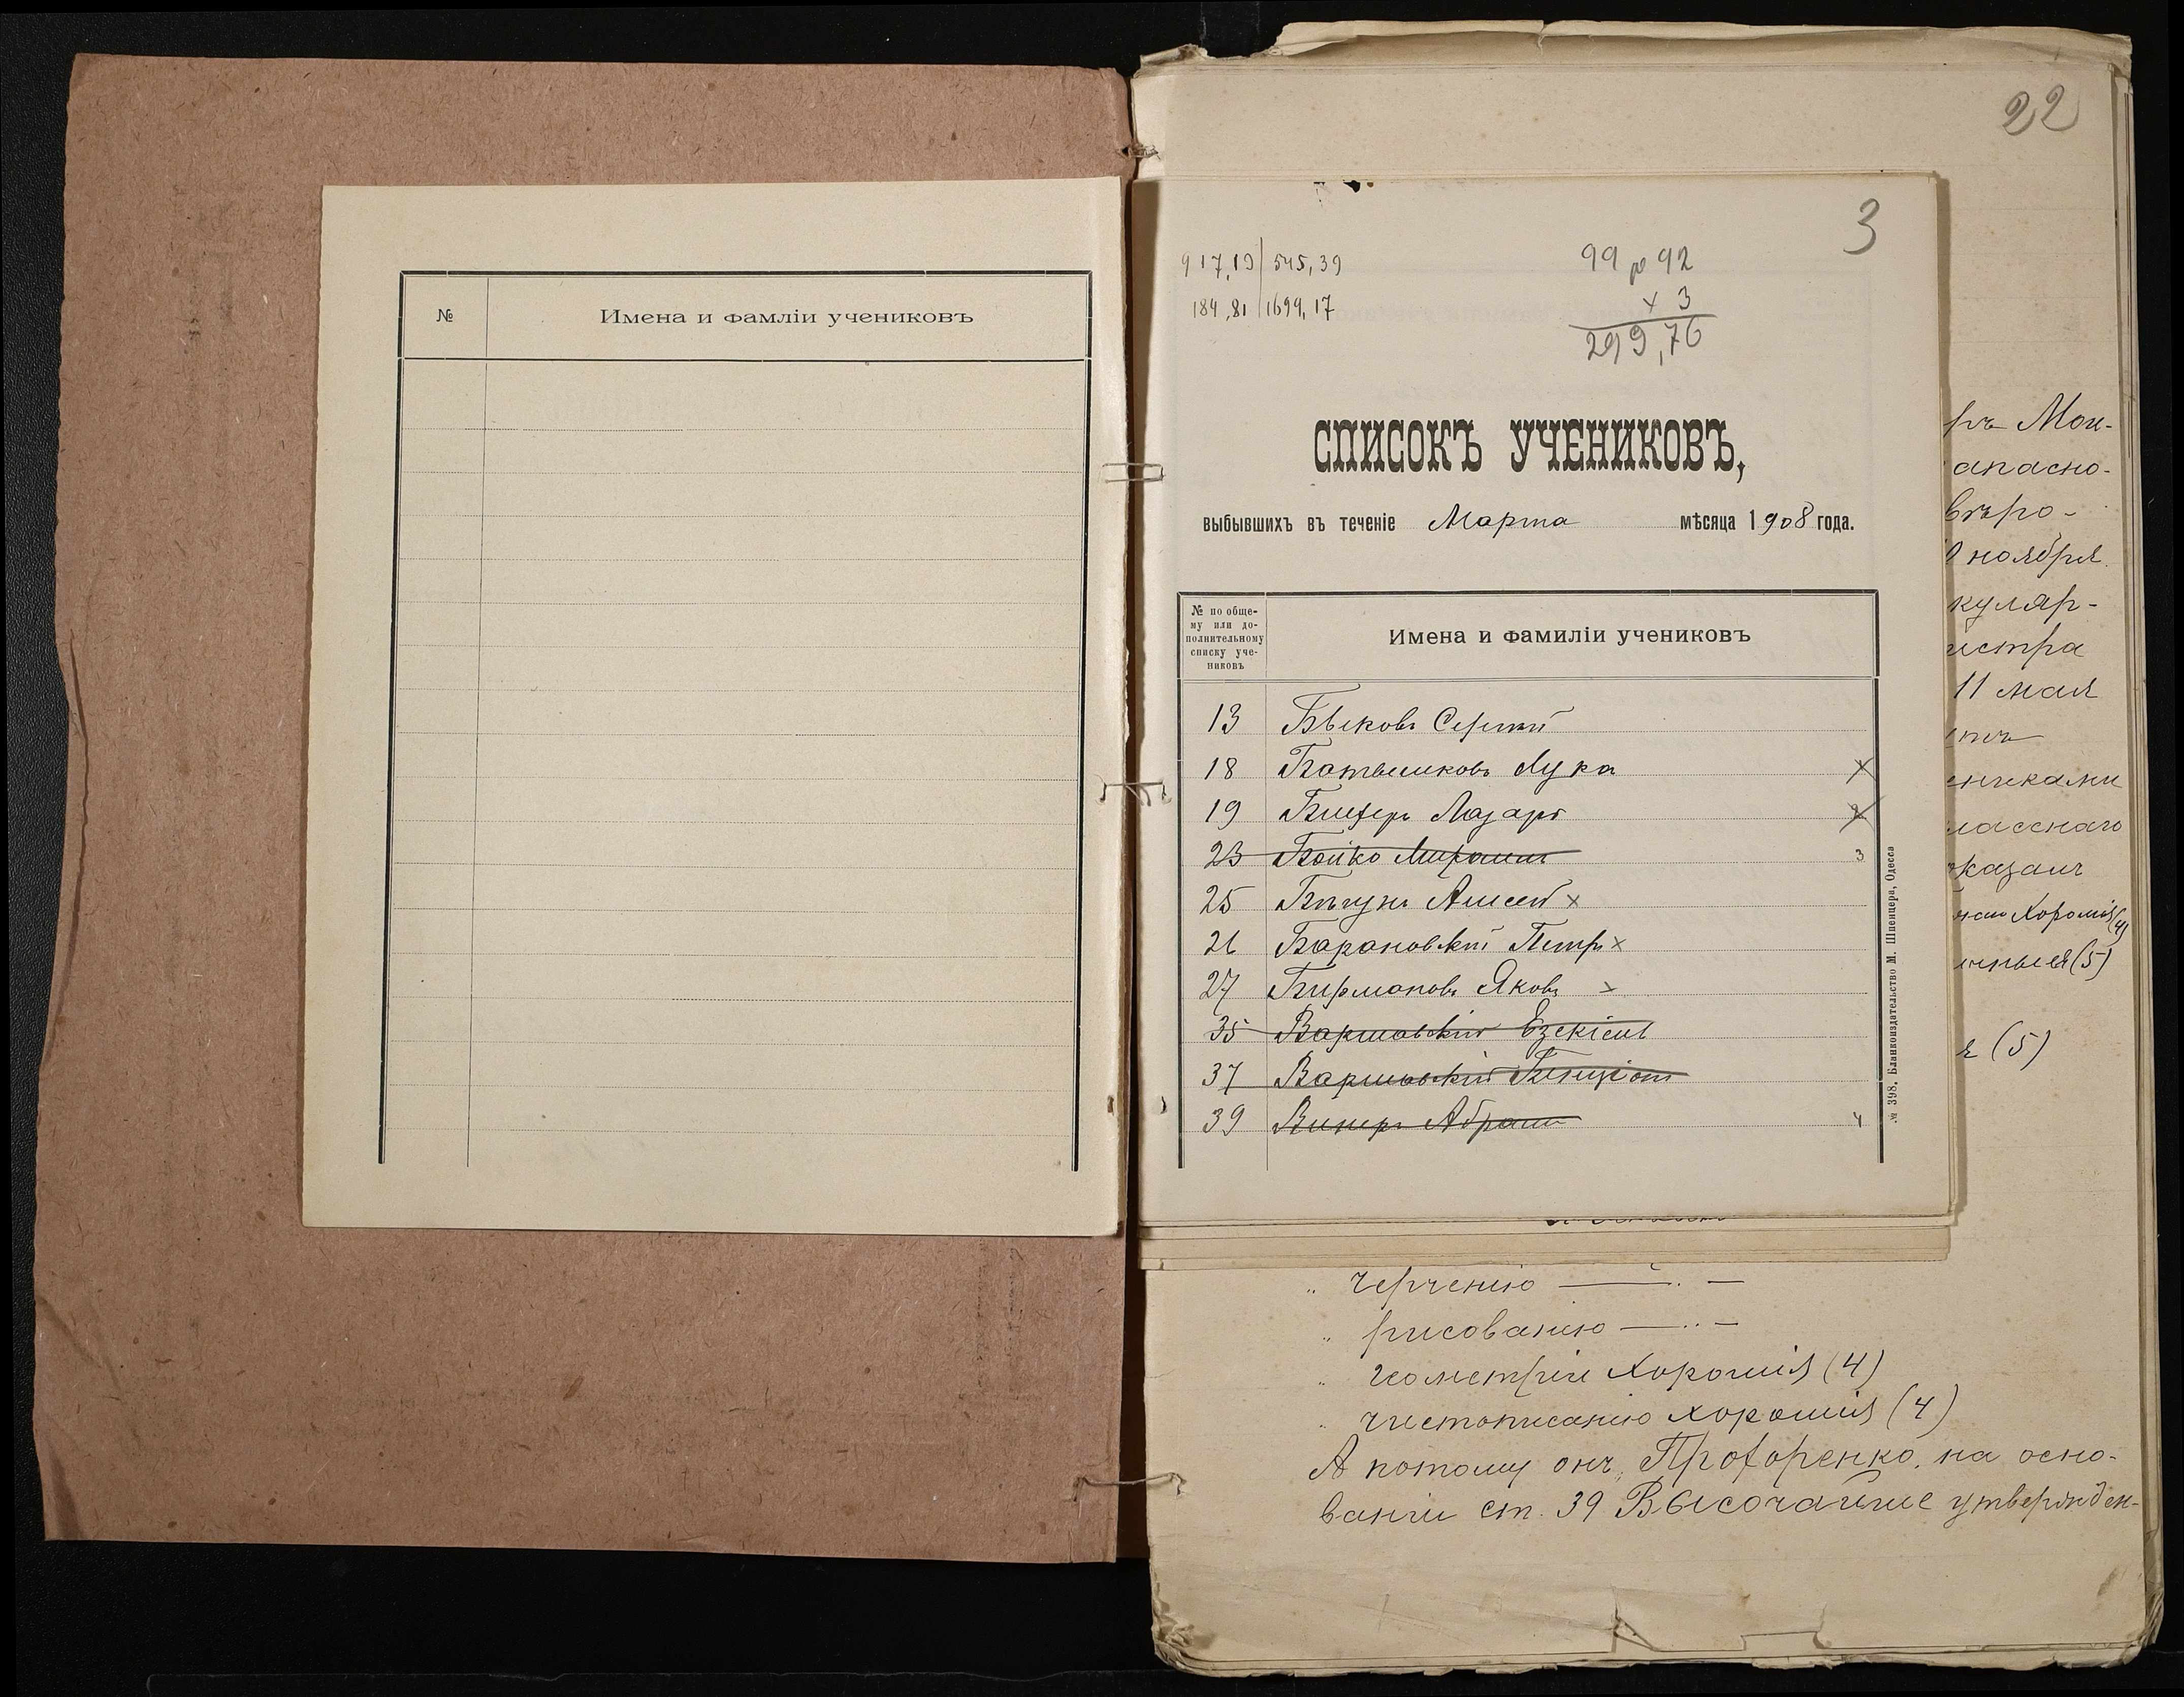 № Имена и фамліи учениковъ
22
3
917,19 545,39
184,81 1699,17
99 р 92
× 3
299,76
СПИСОКЪ УЧЕНИКОВЪ,
выбывшихъ въ теченіе Марта мѣсяца 1908 года.
№ по обще-
му или до-
полнительному
списку уче-
никовъ
Имена и фамиліи учениковъ
13 Быковъ Сергѣй
18 Ботвышковъ Лука ×
19 Лазарь 2
23 Бойко 3
25 Бѣгунъ ×
26 Барановскій Петръ ×
27 Бирмановъ Яковъ ×
35 Варшавскій Езекіель
37 Варшавскій
39 Винеръ Абрамъ 4
№ 398. Бланкоиздательство М. Шпенцера, Одесса
ръ Мои-
апасно-
вѣро-
ноября
куляр-
истра
11 мая
никами
ласснаго
казалъ
Хорошія (4)
(5)
я (5)
„ черченію — „ —
„ рисованію — „ —
„ геометріи Хорошія (4)
„ чистописанію хорошія (4)
А потому онъ, Прохоренко, на осно-
ваніи ст. 39 Высочайше утвержден-